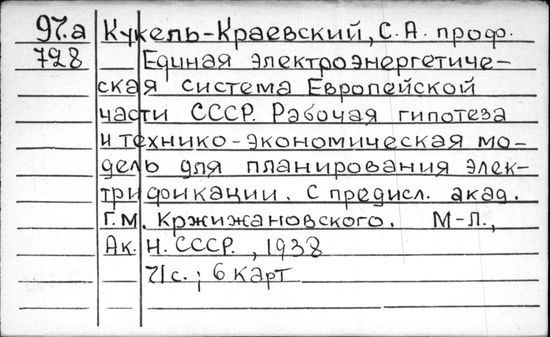 97.а Кукель-Краевский, С.А. проф.
728 Единая электроэнергетиче-
ская система Европейской
части СССР. Рабочая гипотеза
и технико-экономическая мо-
дель для планирования элек-
трификации. С предисл. акад.
Г.М. Кржижановского. М-Л.,
Ак. Н. СССР., 1938
71с.; 6 карт